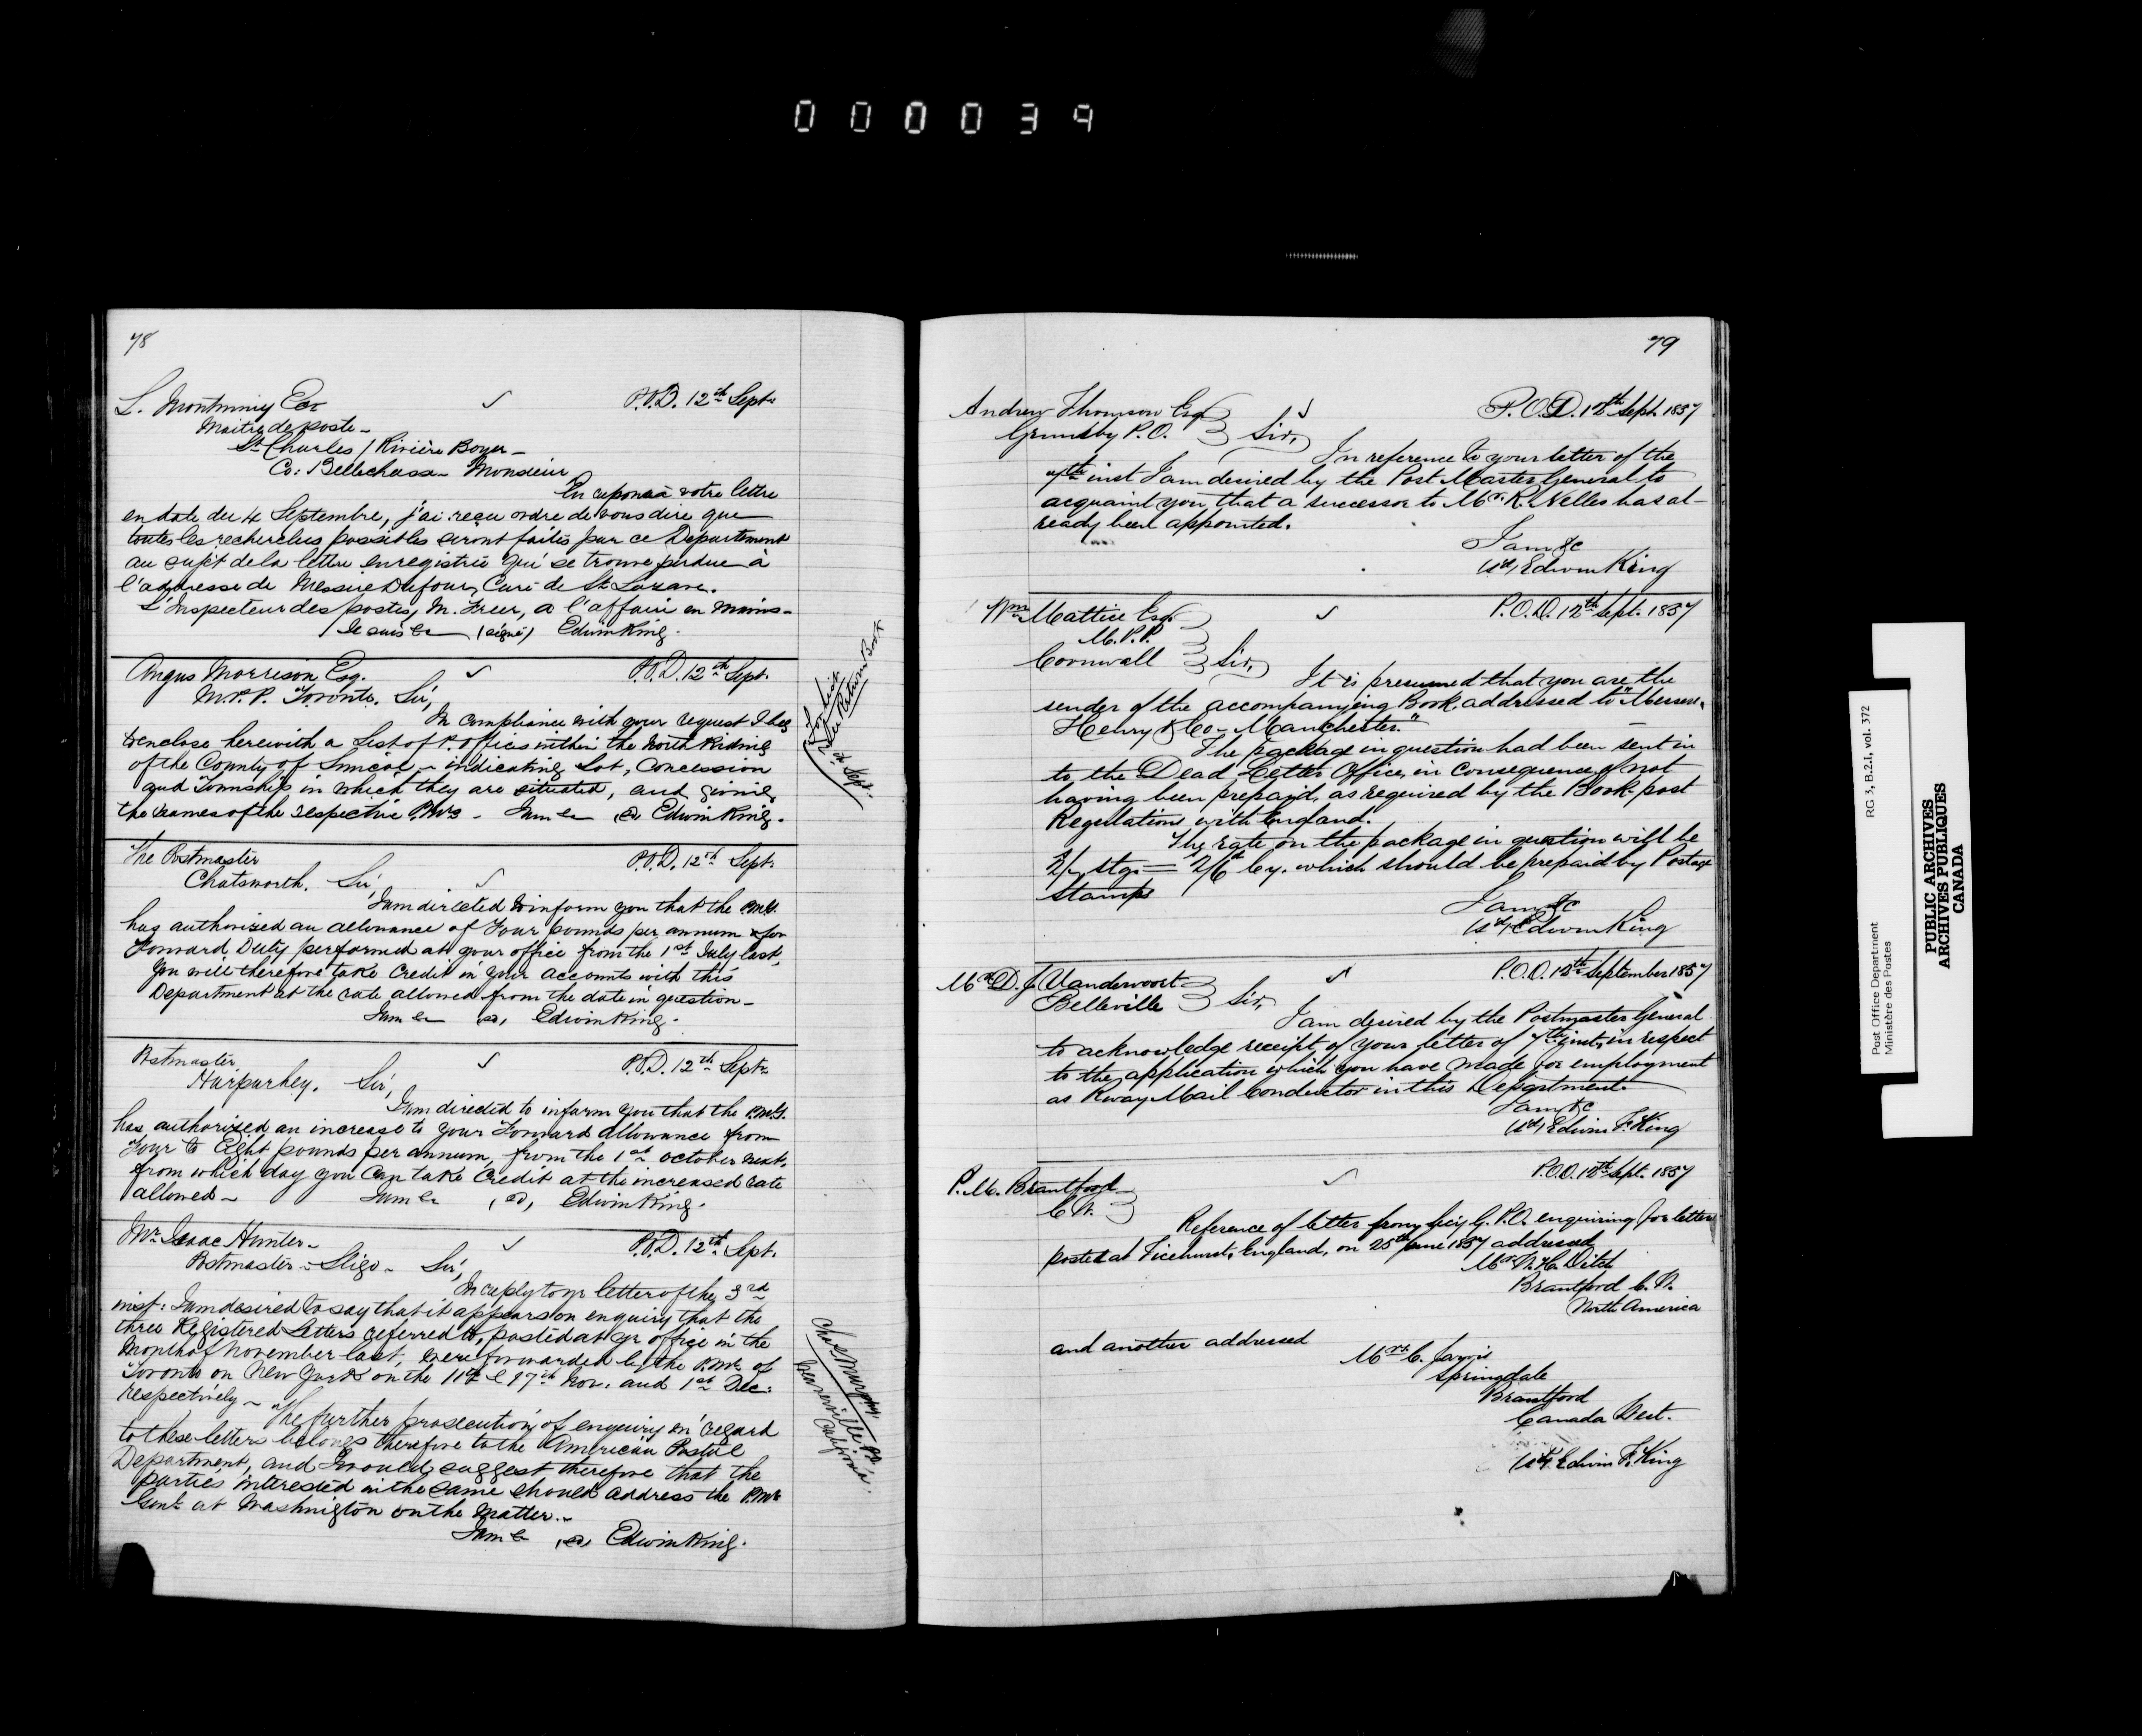 000039
78
L. Montminy Ecr
P.O.D. 12th Sept.
Maitre de poste -
St Charles / Rivière Boyer -
Co: Bellechasse - Monsieur,
En reponse à votre lettre
en date du 4 Septembre, j'ai reçu ordre de vous dire que
toutes les recherches possibles seront faites par ce Departement
au sujet de la lettre enregistrée qui se trouve perdue à
l'addresse de Messire Dufour, Curé de St Lazare.
L'Inspecteur des postes, M. Freer, a l'affaire en mains -
Je suis &c (signé) Edwin King.
Angus Morrison Esq.
P.O.D. 12th Sept.
M.P.P. Toronto. Sir,
In compliance with your request I beg
to enclose herewith a List of P. Offices within the North Riding
of the County of Simcoe, - indicating Lot, Concession
and Township in which they are situated, and giving
the names of the respective P.Mrs - I am &c (sd) Edwin King.
For List
see Return Book
12 Sept.
The Postmaster
P.O.D. 12th Sept.
Chatsworth. Sir,
I am directed to inform you that the P.M.G.
has authorized an allowance of Four pounds per annum for
Forward Duty performed at your office from the 1st July last,
You will therefore take Credit in your accounts with this
Department at the rate allowed from the date in question -
I am &c (sd) Edwin King.
Postmaster
P.O.D. 12th Sept.
Harpurhey. Sir,
I am directed to inform you that the P.M.G.
has authorized an increase to your Forward allowance from
Four to Eight pounds per annum, from the 1st October next,
from which day you can take Credit at the increased rate
allowed - I am &c (sd) Edwin King.
Mr. Isaac Hunter -
P.O.D. 12th Sept.
Postmaster - Sligo - Sir,
In reply to yr letter of the 3rd
inst: I am desired to say that it appears on enquiry that the
three Registered Letters referred to, posted at yr office in the
Month of November last, were forwarded by the P.Mr. of
Toronto on New York on the 11th & 17th Nov. and 1st Dec:
respectively - The further prosecution of enquiry in regard
to these letters belongs therefore to the American Postal
Department, and I would suggest therefore that the
parties interested in the same should address the P.Mr
Genl. at Washington on the matter. -
I am &c (sd) Edwin King.
Chas. Murphy.
P.O.
California.
79
Andrew Thomson Esq
P.O.D. 12th Sept. 1857
Grimsby P.O. Sir,
In reference to your letter of the
inst I am desired by the Post Master General to
acquaint you that a successor to Mr. R. Nelles has al-
ready been appointed.
I am &c
(sd) Edwin King
Wm Mattice Esq.
P.O.D. 12th Sept. 1857
M.P.P.
Cornwall Sir,
It is presumed that you are the
sender of the accompanying Book, addressed to "Messrs.
Henry & Co - Manchester."
The package in question had been sent in
to the Dead Letter Office, in consequence of not
having been prepaid, as required by the Book-post
Regulations with England.
The rate on the package in question will be
2/- stg. = 2/6 Cy. which should be prepaid by Postage
Stamps
I am &c
(sd) Edwin King
Mr D. J. Vandervoort
P.O.D. 12th September 1857
Belleville Sir,
I am desired by the Postmaster General
to acknowledge receipt of your letter of 7th inst, in respect
to the application which you have made for employment
as Rway Mail Conductor in this Department.
I am &c
(sd) Edwin F. King
P.M. Brantford
P.O.D. 12th Sept. 1857
C.W.
Reference of letter from Secy G.P.O. enquiring for letter
posted at Ticehurst, England, on 25th June 1857 addressed
Mr W. H. Ditch
Brantford C.W.
North America
and another addressed
Mrs. C. Jarvis
Springdale
Brantford
Canada West.
(sd) Edwin F. King
Post Office Department
Ministère des Postes
RG 3, B.2.I, vol. 372
PUBLIC ARCHIVES
ARCHIVES PUBLIQUES
CANADA